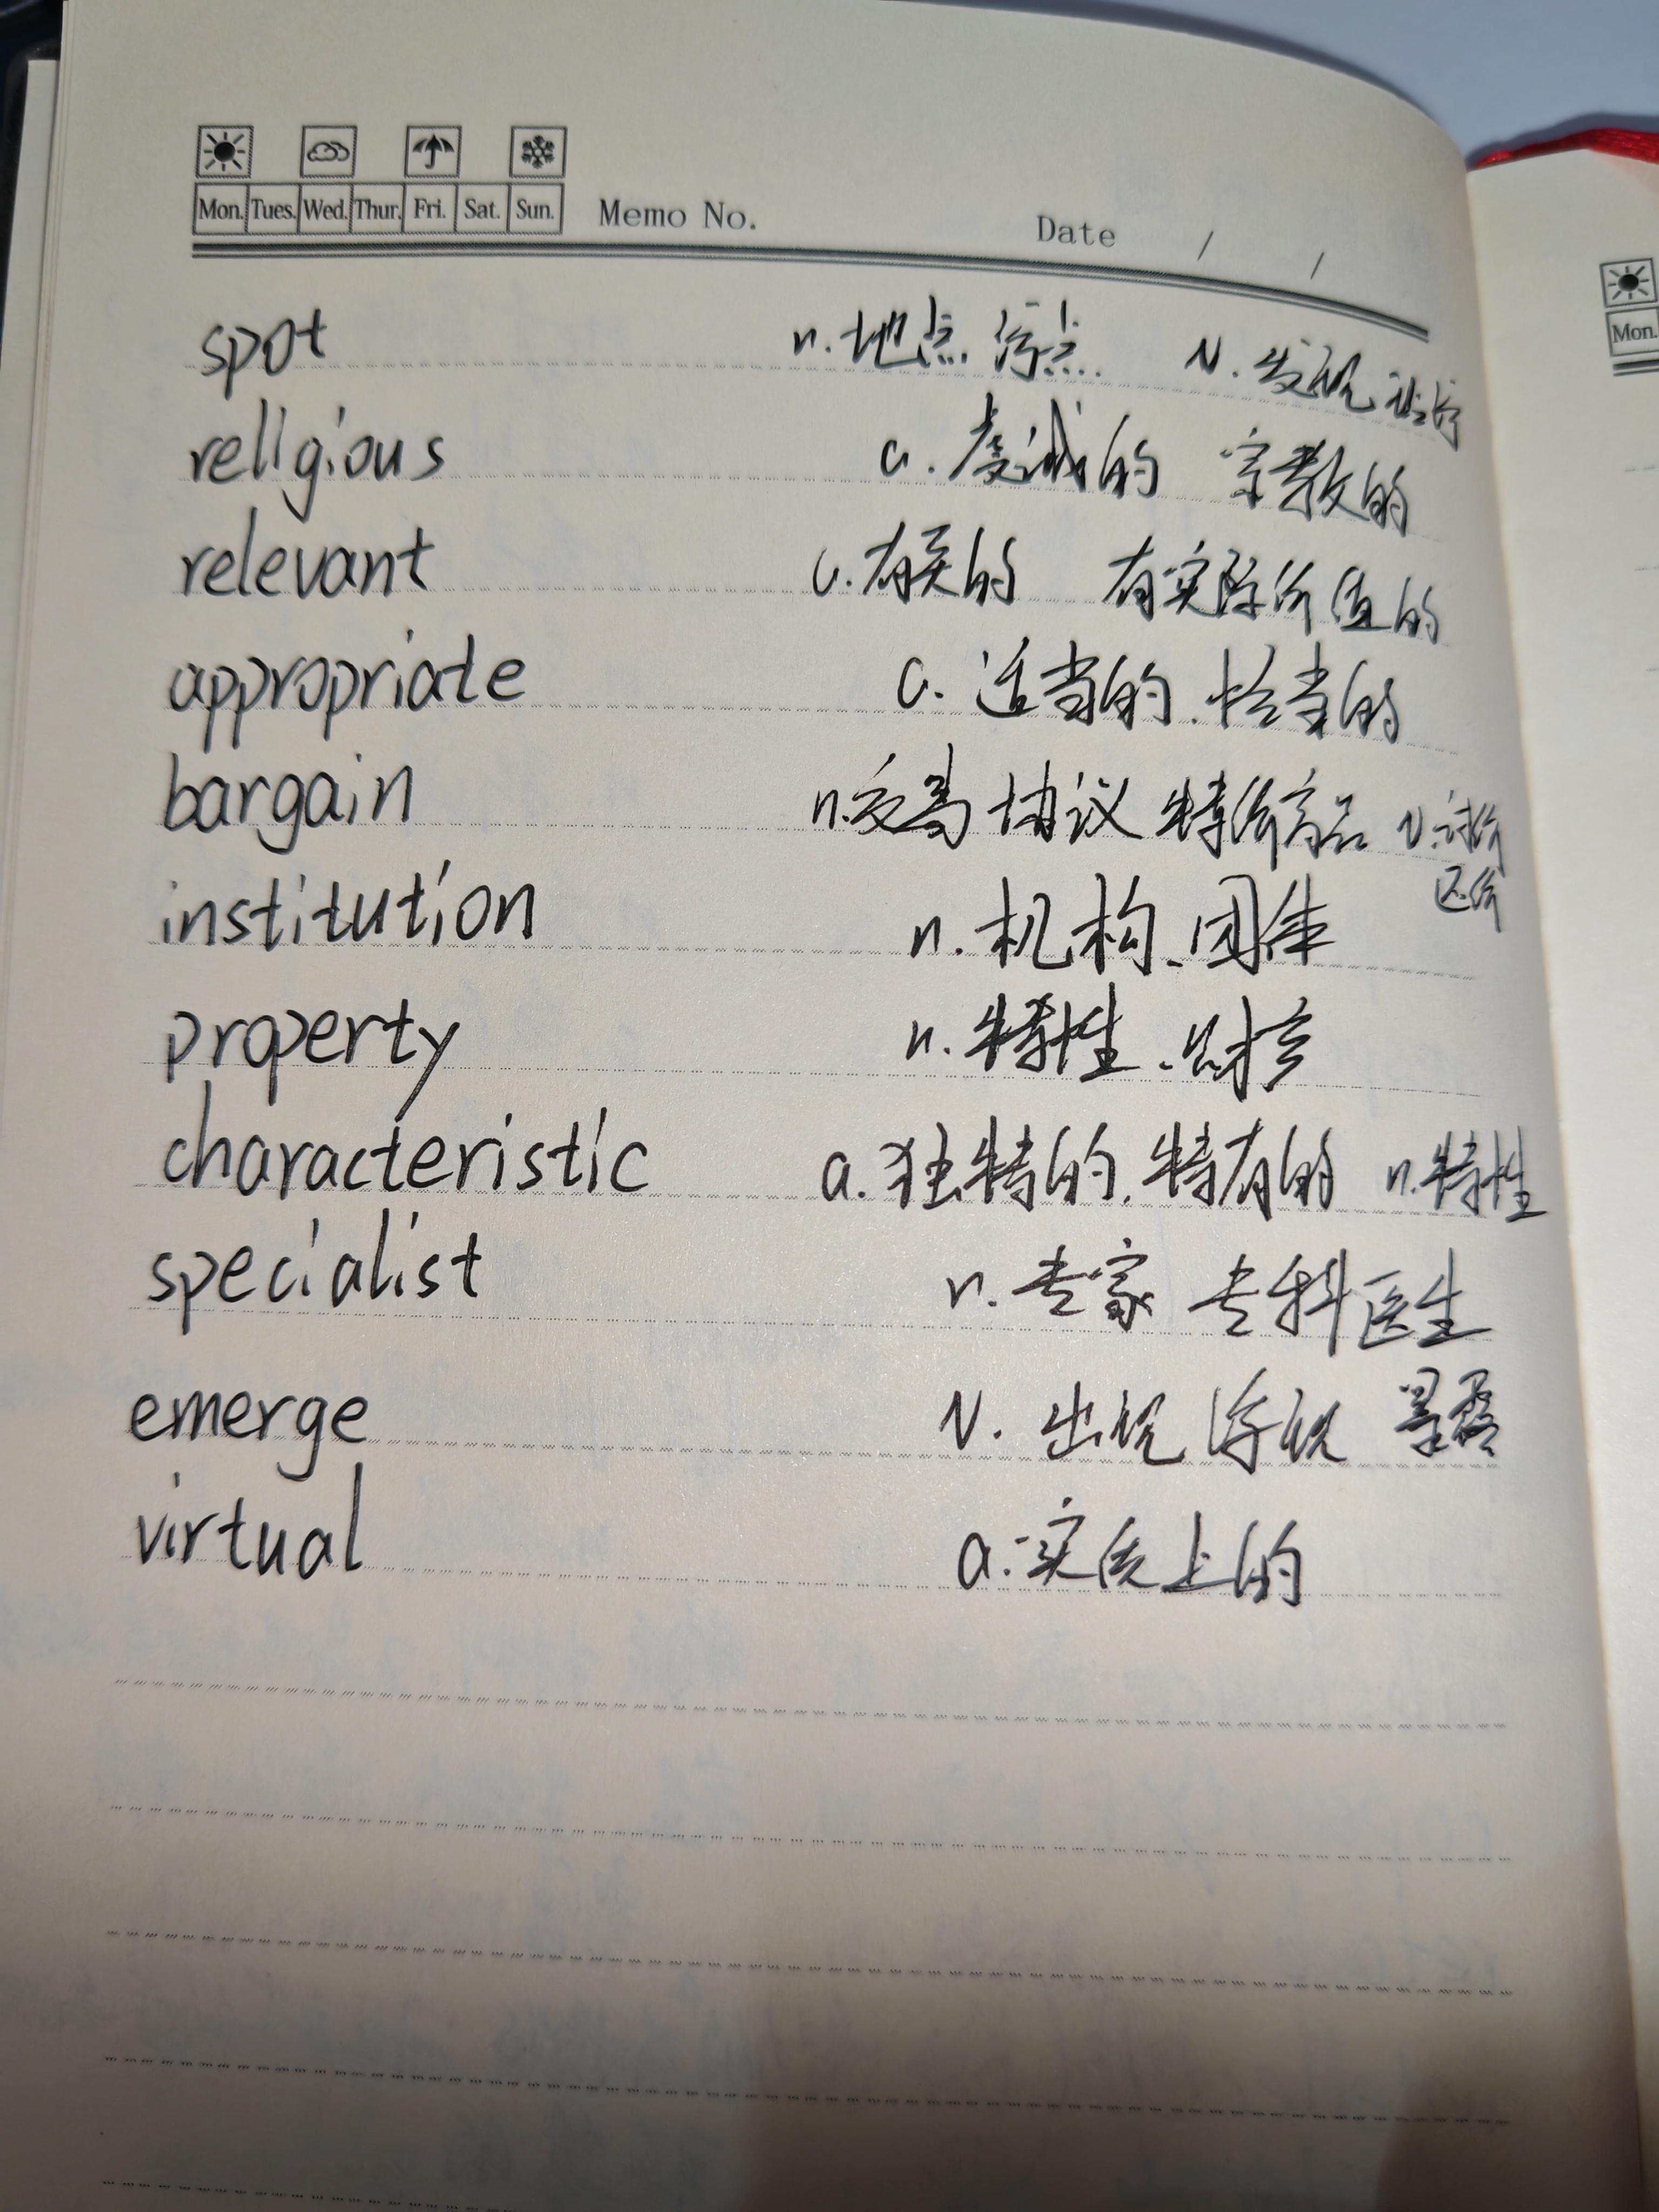 Mon. Tues. Wed. Thur. Fri. Sat. Sun. Memo No. Date / /
Mon.
spot n. 地点. 污点.. v. 发现
religious a. 虔诚的 宗教的
relevant a. 有关的 有实际价值的
appropriate a. 适当的. 恰当的
bargain n. 交易 协议 特价商品 v. 讨价
还价
institution n. 机构、团体
property n. 特性、财产
characteristic a. 独特的. 特有的 n. 特性
specialist n. 专家 专科医生
emerge v. 出现 浮现 暴露
virtual a. 实质上的